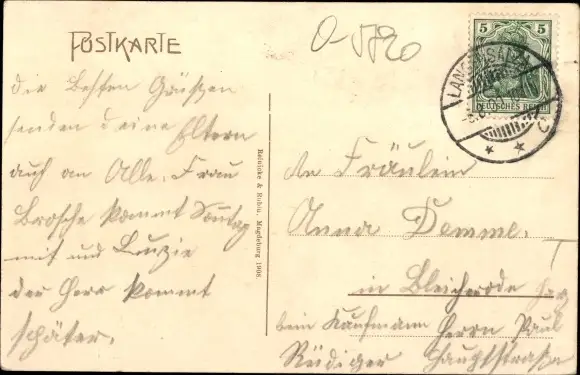 POSTKARTE
O-5820
5 5
LANGENSALZA
DEUTSCHES REICH
die Besten Grüssen
senden deine Eltern
auch an Alle. Frau
Brosche kommt Sonntag
mit und Luzie
der Herr kommt
später.
Reinicke & Rubin, Magdeburg 1908.
An Fräulein
Anna Demme.
in Bleicherode
beim Kaufmann Herrn Paul
Rüdiger Hauptstraße